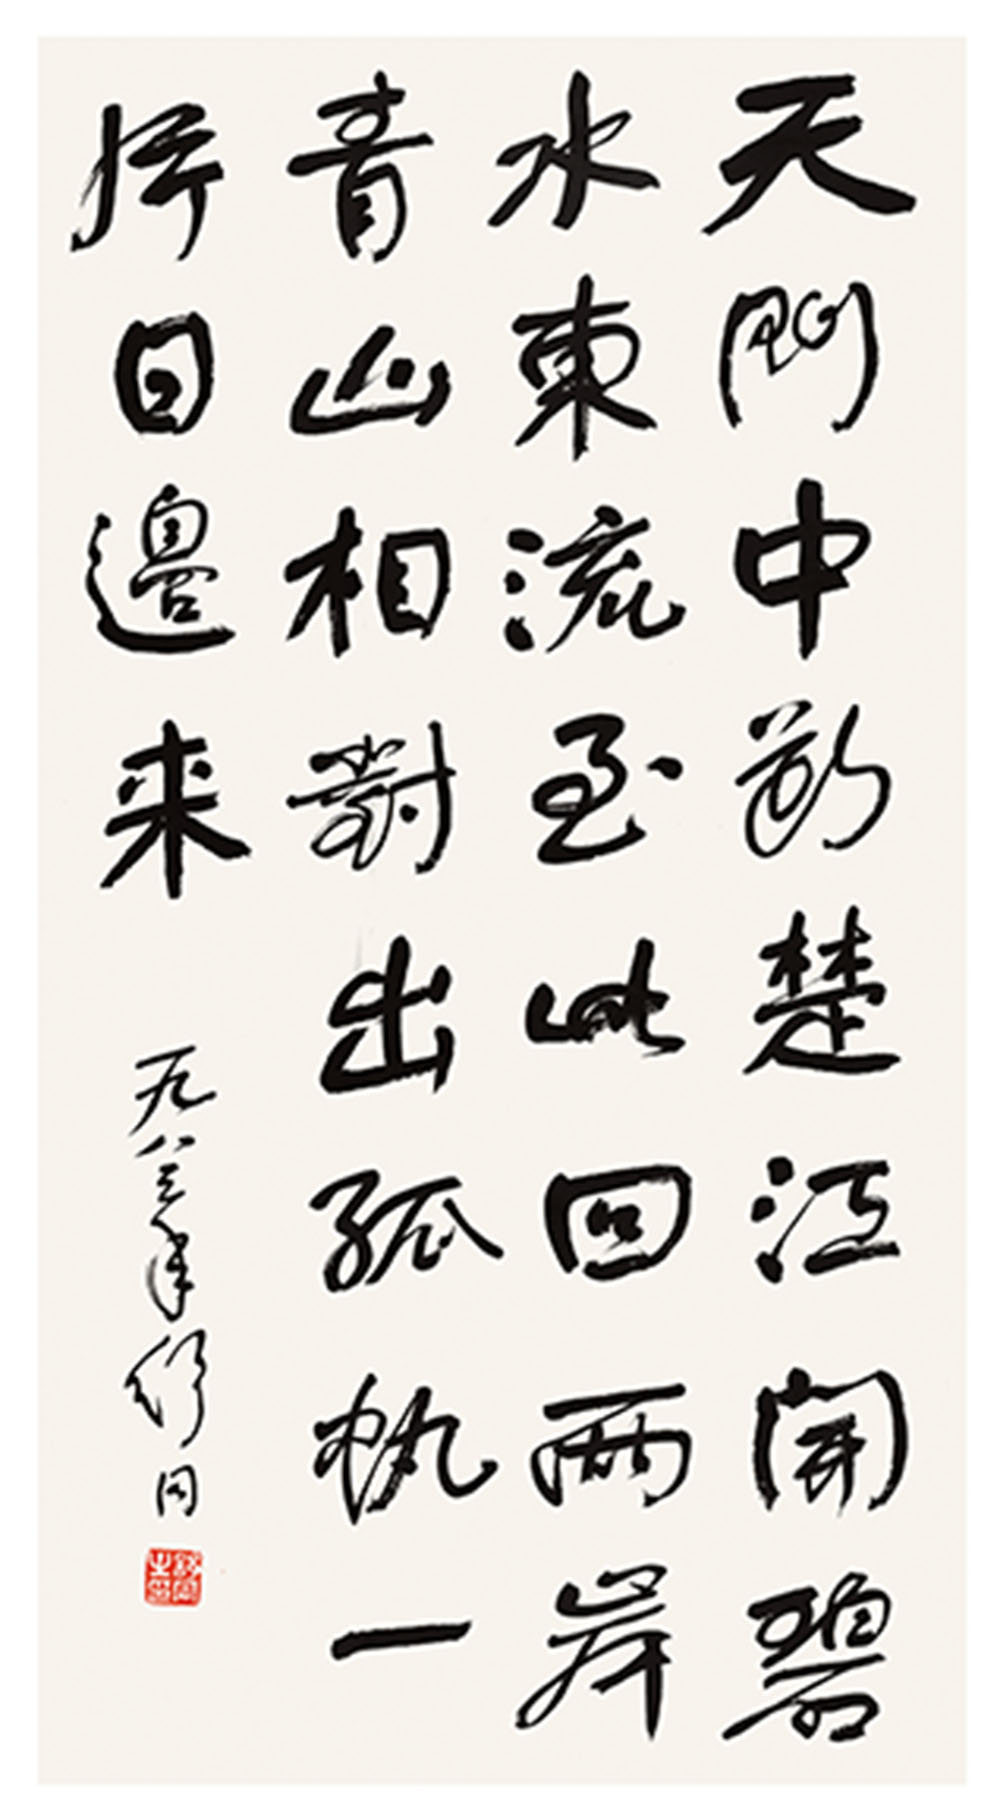 天門中斷楚江開碧
水東流至此回兩岸
青山相對出孤帆一
片日邊来
一九八三年舒同
舒同之印